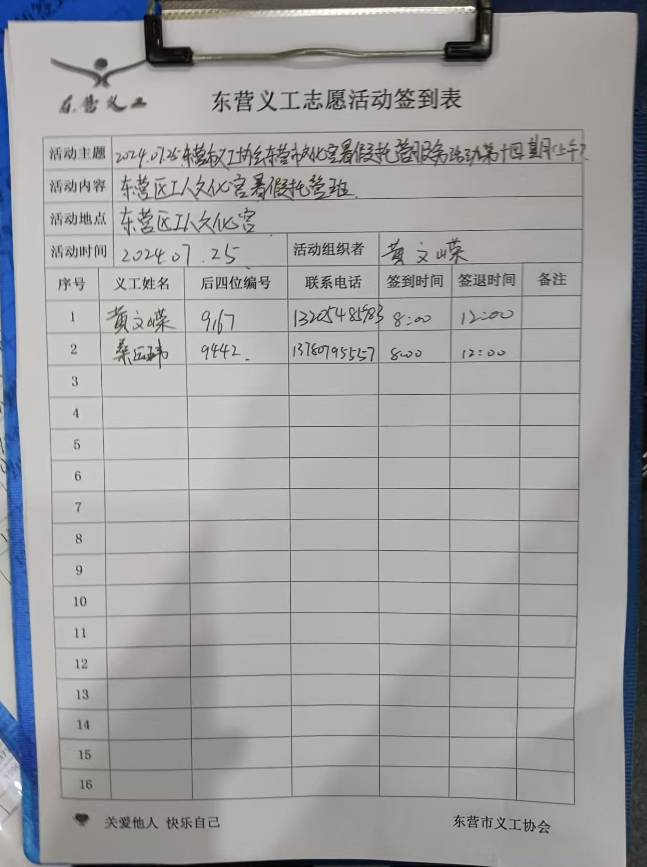 东营义工
东营义工志愿活动签到表
活动主题 2024.07.25东营市义工协会东营市文化宫暑假托管服务活动第十四期(上午)
活动内容 东营区工人文化宫暑假托管班
活动地点 东营区工人文化宫
活动时间 2024.07.25 活动组织者 黄文嵘
序号 义工姓名 后四位编号 联系电话 签到时间 签退时间 备注
1 黄文嵘 9167 13205485783 8:00 12:00
2 桑 9442. 13780795557 8:00 12:00
3
4
5
6
7
8
9
10
11
12
13
14
15
16
关爱他人 快乐自己 东营市义工协会